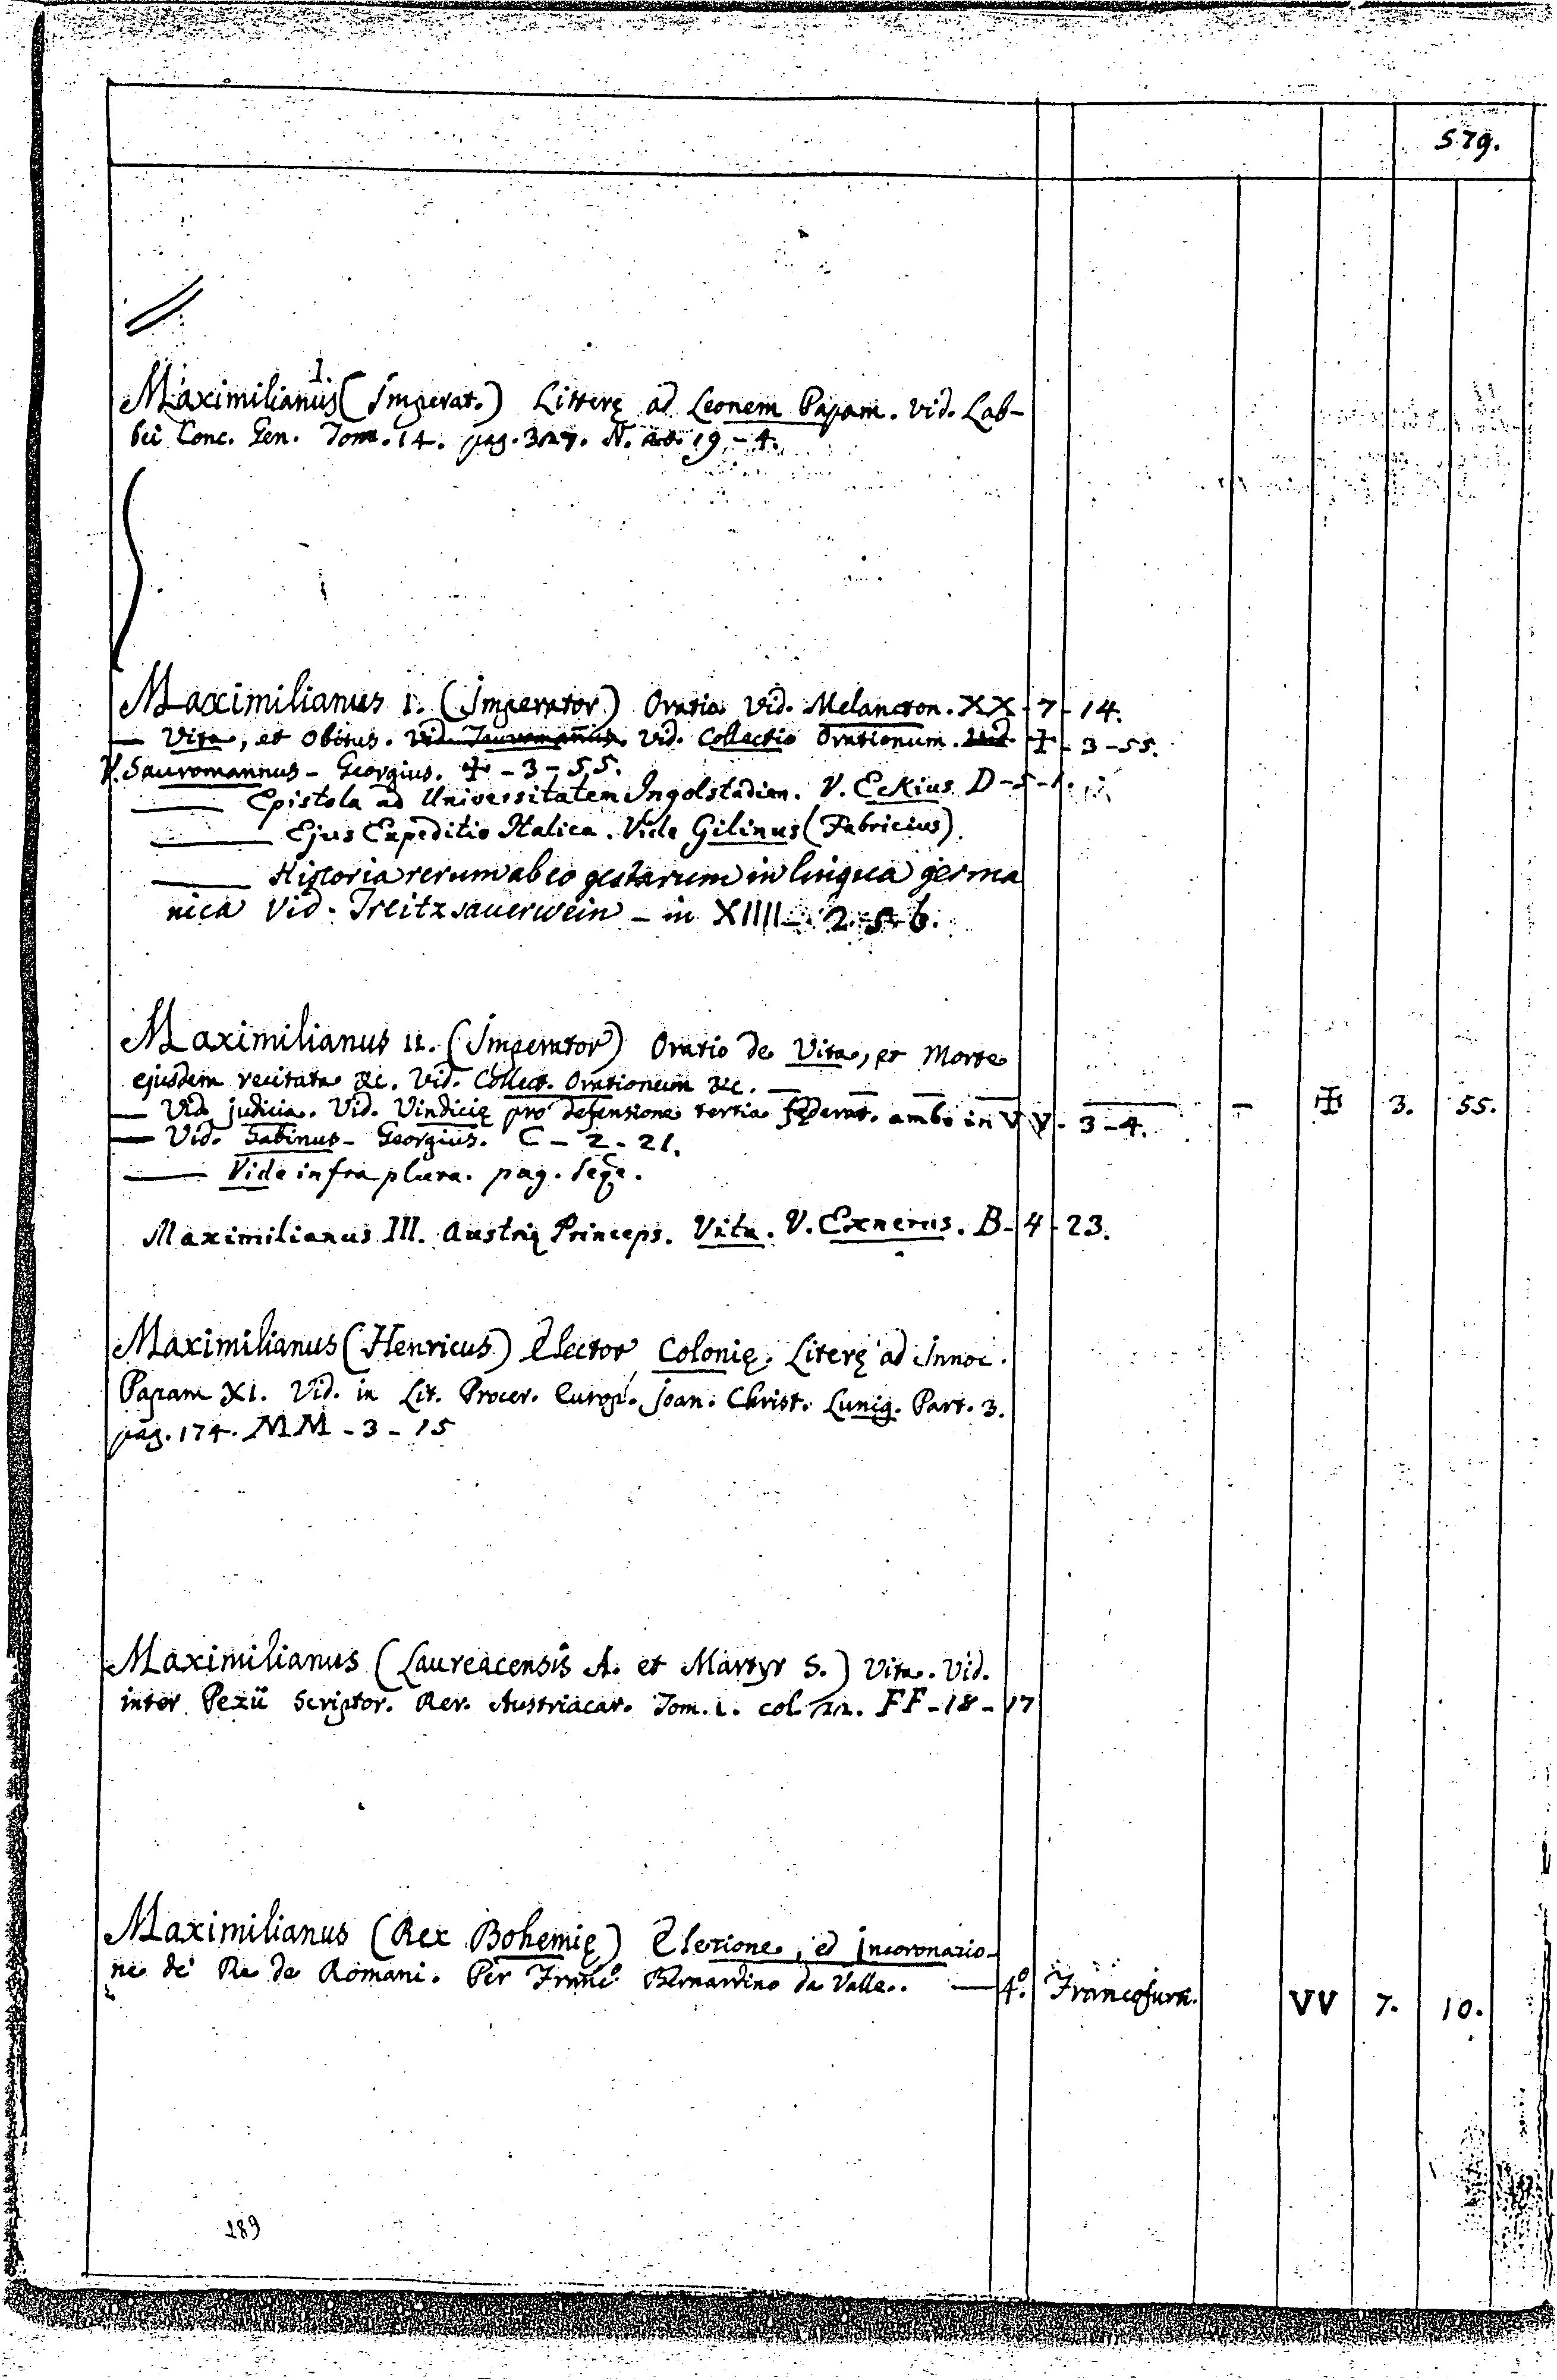 579.
Maximilianus I. (Imperat.) Litterę ad Leonem Papam. Vid. Lab-
bei Conc. Gen. Tom. 14. pag. 327. N. 19 - 4.
Maximilianus I. (Imperator) Oratio Vid. Melancton. XX - 7 - 14.
— Vita, et Obitus. Vid. Sauromannus. Vid. Collectio Orationum. Vid. ✠ - 3 - 55.
V. Sauromannus - Georgius. ✠ - 3 - 55.
— Epistola ad Universitatem Ingolstadien. V. Eckius D - 5 - 1.
— Ejus Expeditio Italica. Vide Gilinus (Fabricius).
— Historia rerum ab eo gestarum in lingua germa
nica Vid. Treitzsauerwein - in XIIII - 2. 5 6.
Maximilianus II. (Imperator) Oratio de Vita, et Morte
ejusdem recitata &c. Vid. Collect. Orationum &c. — — — — — ✠ 3. 55.
— Vid. judicia. Vid. Vindicię pro defensione tertia fęderat. ambo in VV - 3 - 4.
— Vid. Sabinus - Georgius. C - 2 - 21.
— Vide infra plura. pag. seqe.
Maximilianus III. Austrię Princeps. Vita. V. Exnerus. B - 4 - 23.
Maximilianus (Henricus) Elector Colonię. Literę ad Innoc.
Papam XI. Vid. in Lit. Procer. Europ. Joan. Christ. Lunig. Part. 3.
pag. 174. MM - 3 - 15
Maximilianus (Laureacensis A. et Martyr S.) Vita. Vid.
inter Pezii Scriptor. Rer. Austriacar. Tom. 1. col. 22. FF - 18 - 17
Maximilianus (Rex Bohemię) Elezione, ed Incoronazio-
ne de' Re de Romani. Per Franc.o Bernardino da Valle. — 4.o Francofurti. VV 7. 10.
289